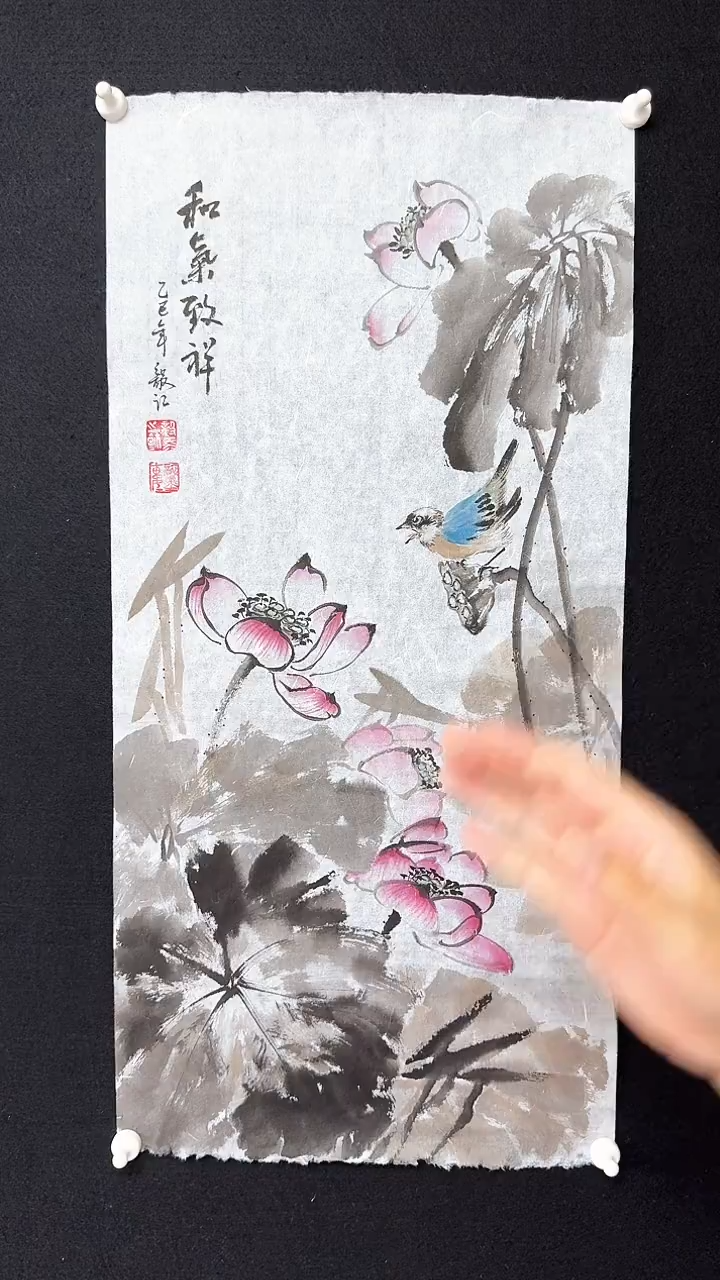 和氣致祥
乙巳年毅記